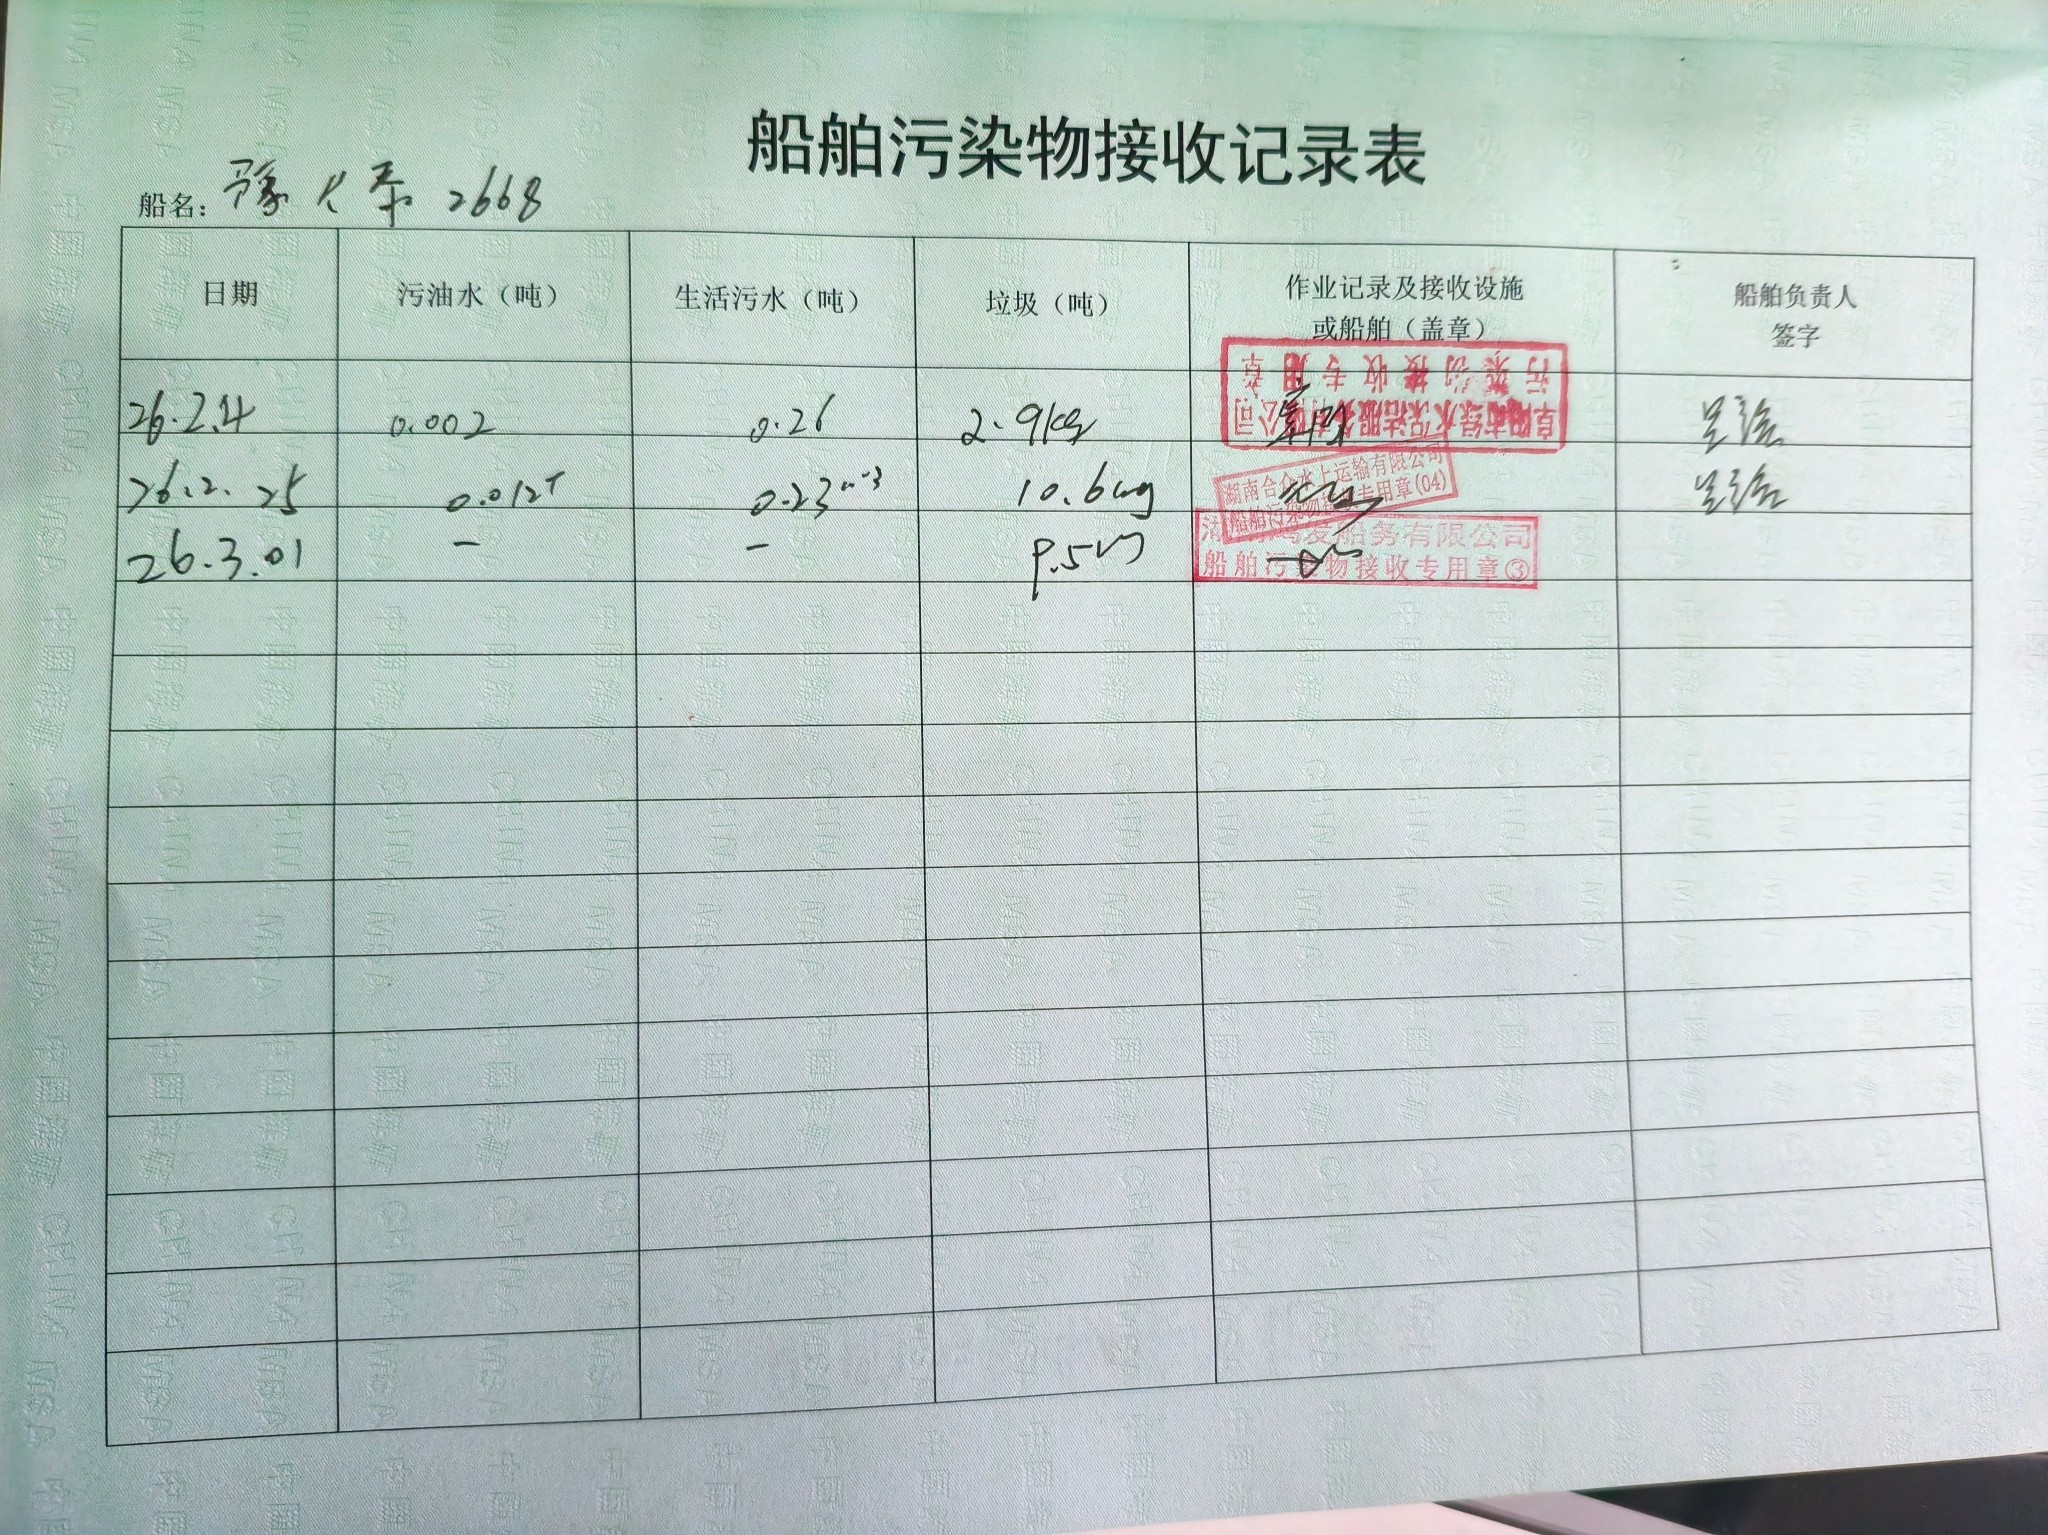 船舶污染物接收记录表
船名： 豫 2668
日期 污油水（吨） 生活污水（吨） 垃圾（吨） 作业记录及接收设施 船舶负责人
或船舶（盖章） 签字
污染物接收专用章
26.2.4 0.002 0.26 2.9kg
阜阳市绿水保洁服务有限公司
湖南合众水上运输有限公司
26.2.25 0.012T 0.23m3 10.6
船舶污染物接收专用章(04)
发船务有限公司
26.3.01 - -
船舶污染物接收专用章③
中国海事 CHINA MSA